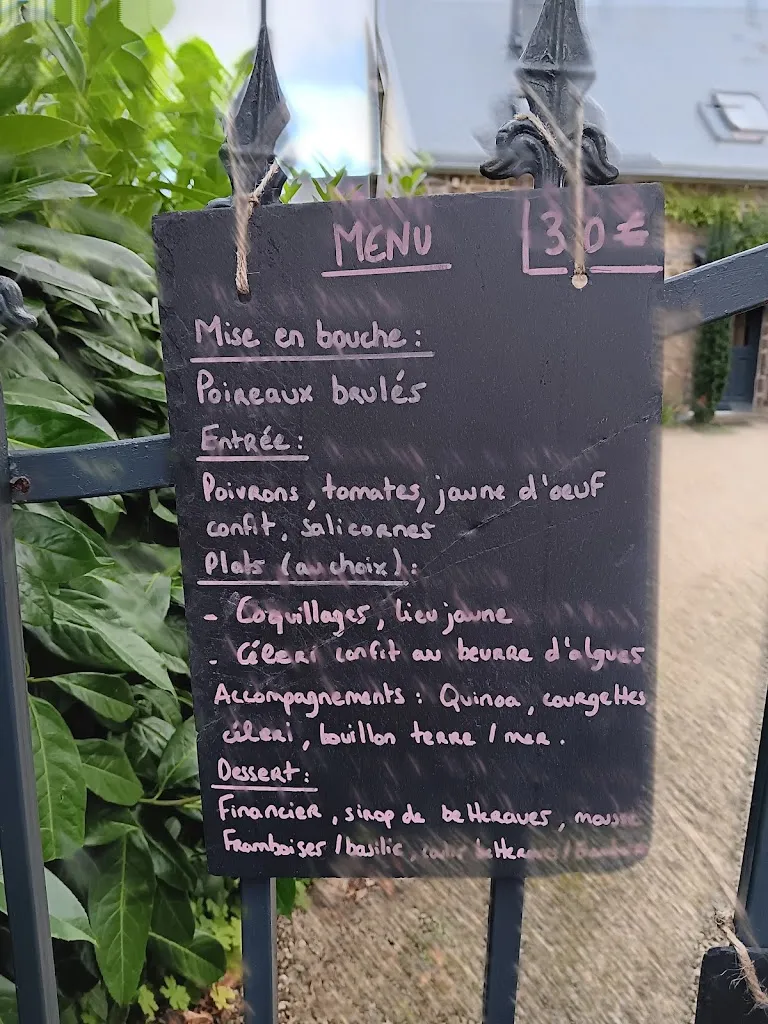 MENU 30€
Mise en bouche :
Poireaux brulés
Entrée :
Poivrons, tomates, jaune d'oeuf
confit, salicornes
Plats (au choix) :
- Coquillages, lieu jaune
- Céleri confit au beurre d'algues
Accompagnements : Quinoa, courgettes
céleri, bouillon terre / mer.
Dessert :
Financier, sirop de betteraves, mousse
Framboises / basilic,